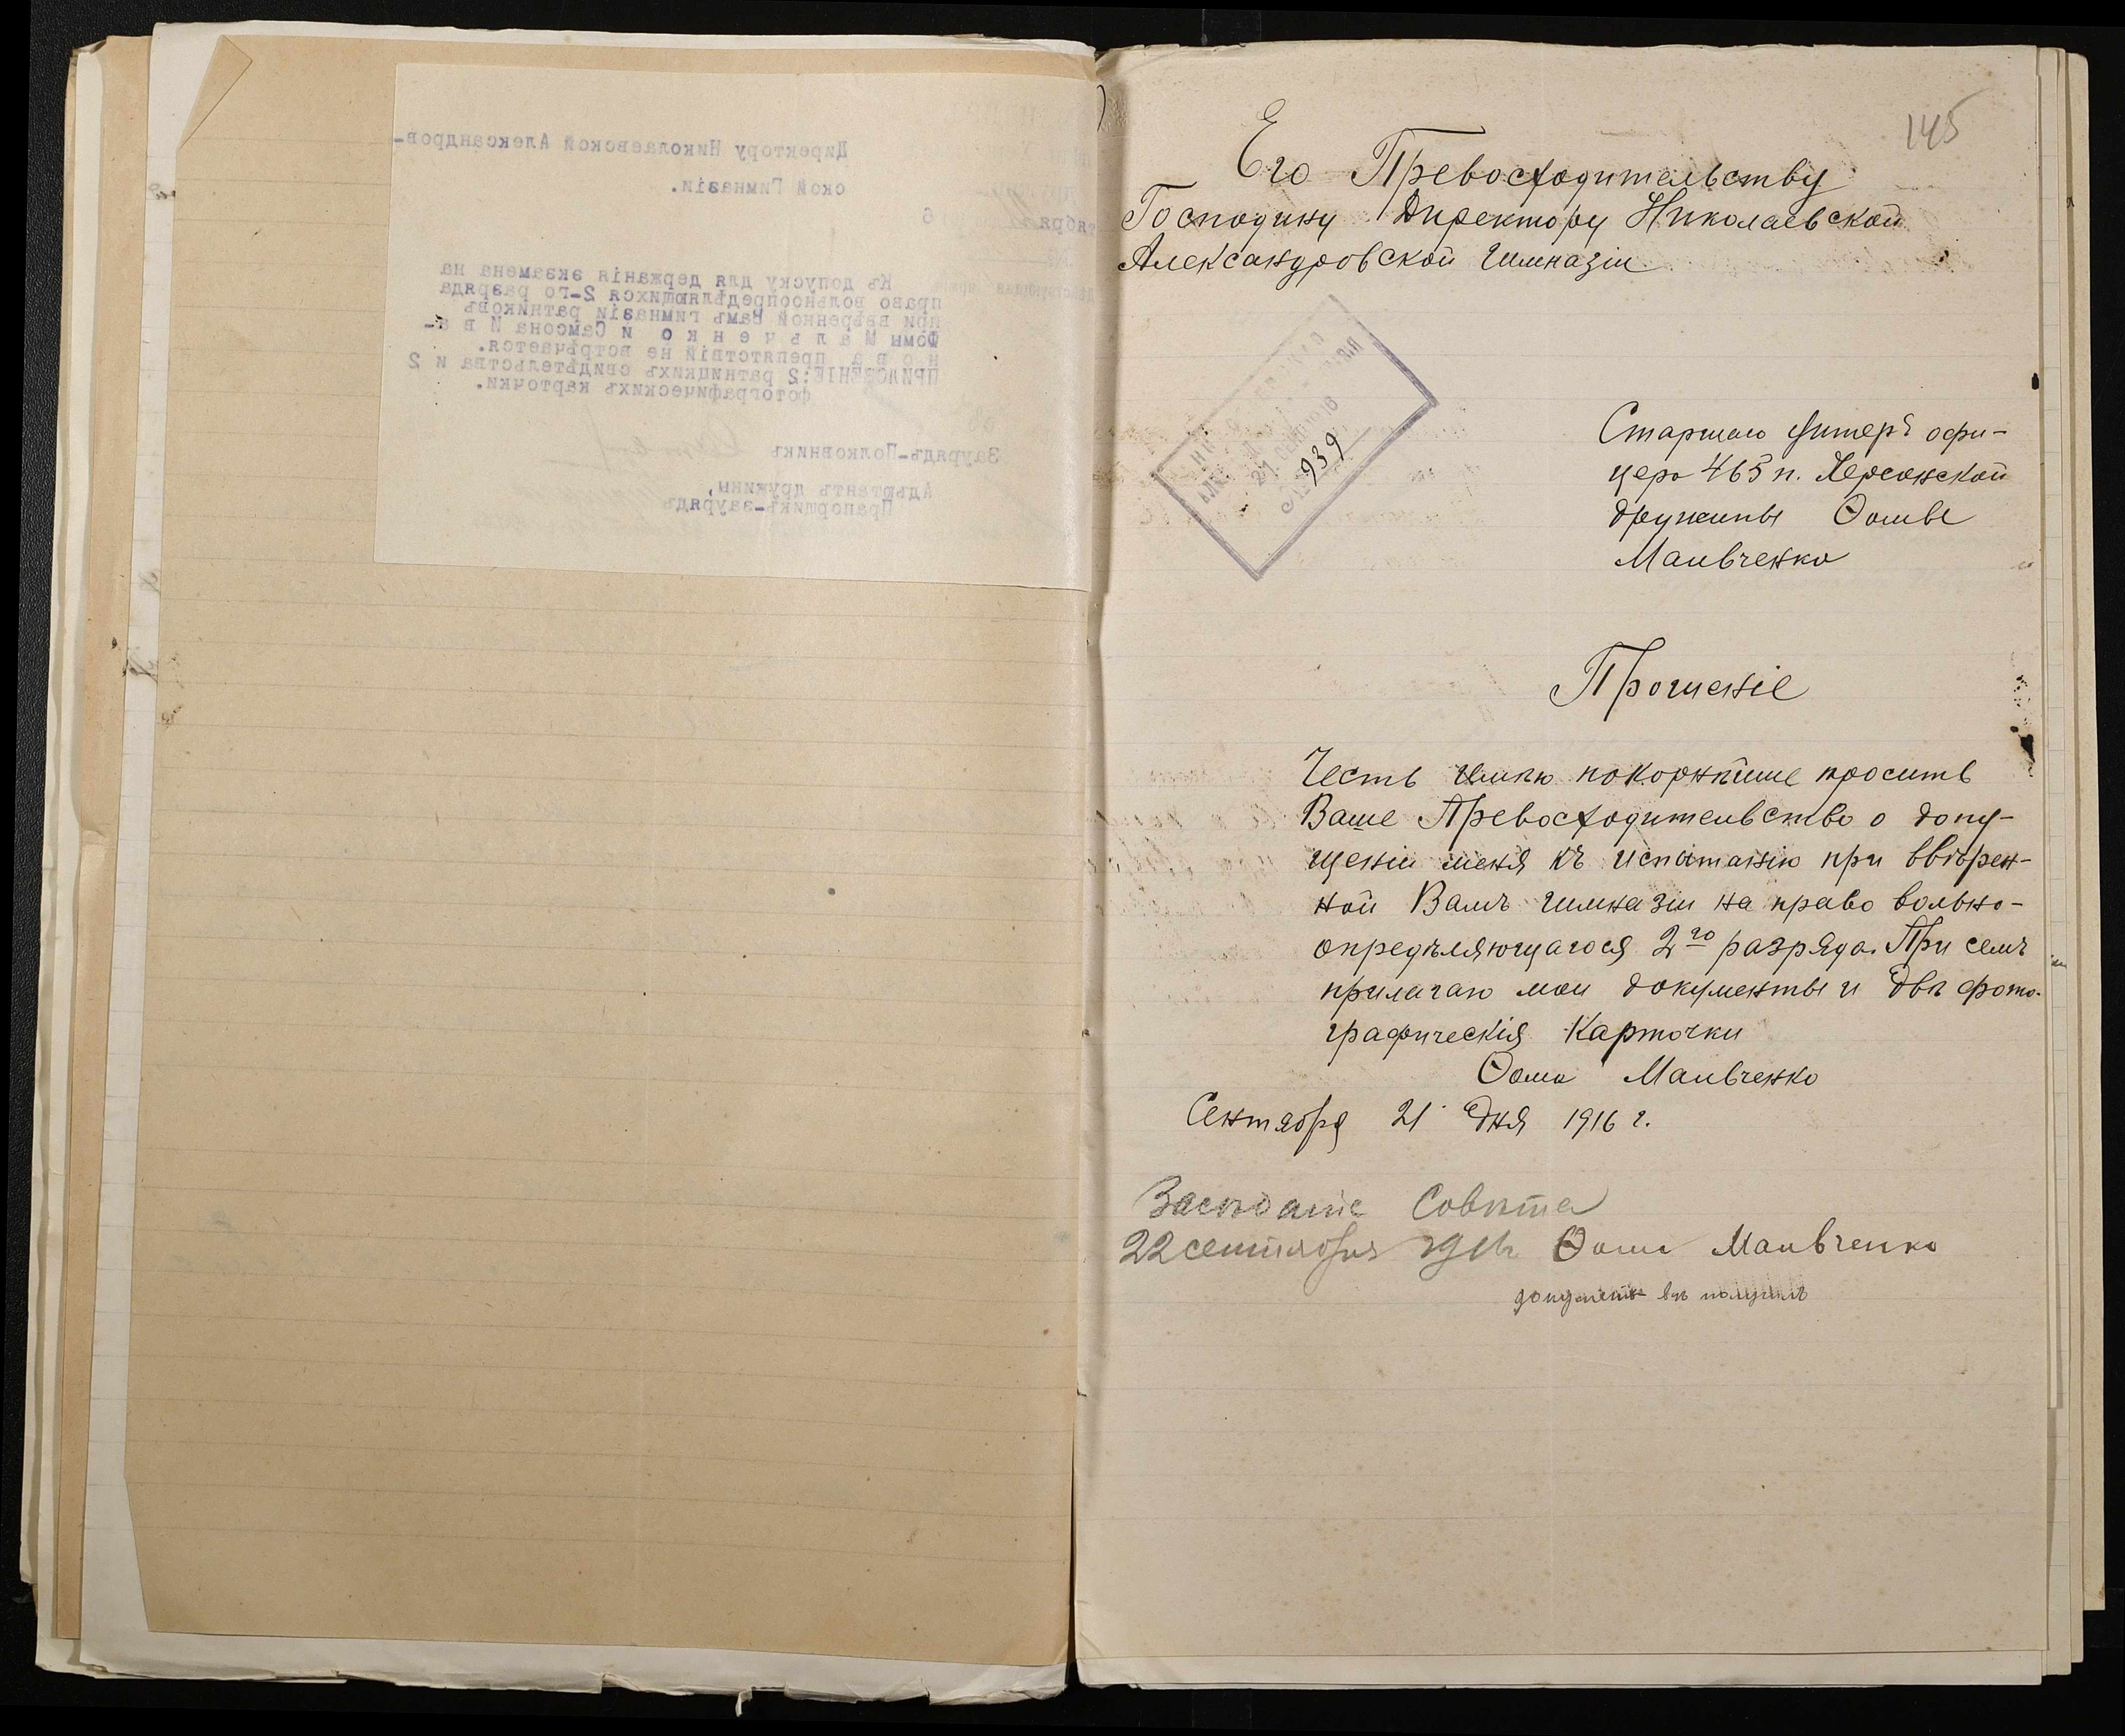 Директору Николаевской Александров-
ской Гимназіи.
Къ допуску для держанія экзамена на
право вольноопредѣляющихся 2-го разряда
при ввѣренной Вамъ гимназіи ратниковъ
Фомы Мальченко и Самсона Ива-
нова препятствій не встрѣчается.
ПРИЛОЖЕНІЕ: 2 ратницкихъ свидѣтельства и 2
фотографическихъ карточки.
Заурядъ-Полковникъ
Адъютантъ дружины,
Прапорщикъ-заурядъ
145
Его Превосходительству
Господину Директору Николаевской
Александровской Гимназіи
939
Старшаго Унтеръ офи-
цера 465 п. Херсонской
дружины Ѳомы
Мальченко
Прошеніе
Честь имѣю покорнѣйше просить
Ваше Превосходительство о допу-
щеніи меня къ испытанію при ввѣрен-
ной Вамъ гимназіи на право вольно-
опредѣляющагося 2го разряда. При семъ
прилагаю мои документы и двѣ фото-
графическія карточки
Ѳома Мальченко
Сентября 21 дня 1916 г.
Засѣданіе Совѣта
22 сентября Ѳома Мальченко
получилъ